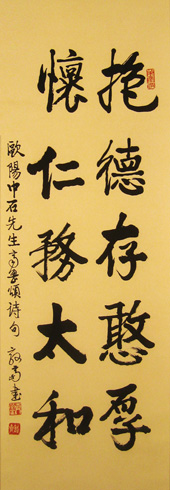 抱德存憨厚
懷仁務太和
歐陽中石先生高密頌詩句